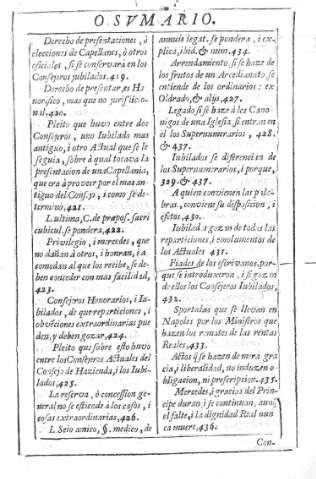 O SVMARIO.
Derecho de presentaciones, ò
elecciones de Capellanes, ò otros
oficiales, si se conservarà en los
Consejeros jubilados. 419.
Derecho de presentar es Ho
norifico, mas que no jurisdicio-
nal, 420.
Pleito que huvo entre dos
Consejeros, uno Iubilado mas
antiguo, i otro Actual que se le
seguia, sobre à qual tocava la
presentacion de una Capellania,
que era à prover por el mas an-
tiguo del Consejo, i como se de-
terminò, 421.
L. ultima, C. de propos. sacri
cubicul. se pondera, 422.
Privilegio, i mercedes, que
no dañan à otros, i honran, i a
comodan al que los recibe, se de-
ben conceder con mas facilidad,
423.
Consejeros Honorarios, i Iu-
bilados, de que reparticiones, i
obvenciones extraordinarias pue
den, y deben gozar, 424.
Pleito que sobre esto huvo
entre los Consejeros Actuales del
Consejo de Hazienda, i los Iubi-
lados, 425.
La reserva, ò concession ge-
neral no se estiende à los casos, i
cosas extraordinarias, 426.
L. Seio amico, §. medico, de
annuis legat. se pondera, i ex-
plica, ibid. & num. 434.
Arrendamiento, si se haze de
los frutos de un Arcedianato, se
entiende de los ordinarios: ex
Oldrado, & alijs, 427.
Legado si se haze à los Cano
nigos de una Iglesia, si entran en
el los Supernumerarios, 428.
& 437.
Iubilados se diferencian de
los Supernumerarios, i porque,
329. & 437.
A quien convienen las pala-
bras, conviene su disposicion, i
efetos, 430.
Iubilado gozan de todas las
reparticiones, i emolumentos de
los Actuales 431.
Fiades de los escrivanos, por-
que se introduxeron, i si gozen
de ellos los Consejeros Iubilados,
432.
Sportadas que se llevan en
Napoles por los Ministros que
hazen los remates de las rentas
Reales, 433.
Actos si se hazen de mera gra
cia, i liberalidad, no inducen o-
bligacion, ni prescripcion. 435.
Mercedes, ò gracias del Prin-
cipe duran, i se continuan, aunq̃
el falte, i la dignidad Real nun
ca muere, 436.
Con-